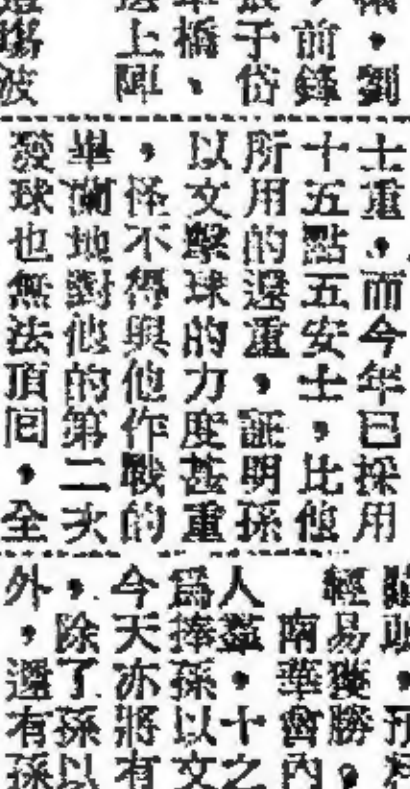 劉
前，鋒
子俗
橋、
上陣
波
士重，而今年已採用
十五點五安士，比他
所用的還重，証明孫
以文擊球的力度甚重
，怪不得與他作戰的
畢蘭地對他的第二次
發球也無法頂回，全
經易獲勝，
南華會內，
人羣，十之
爲捧孫以文
今天亦將有
，除了孫以
外，還有孫